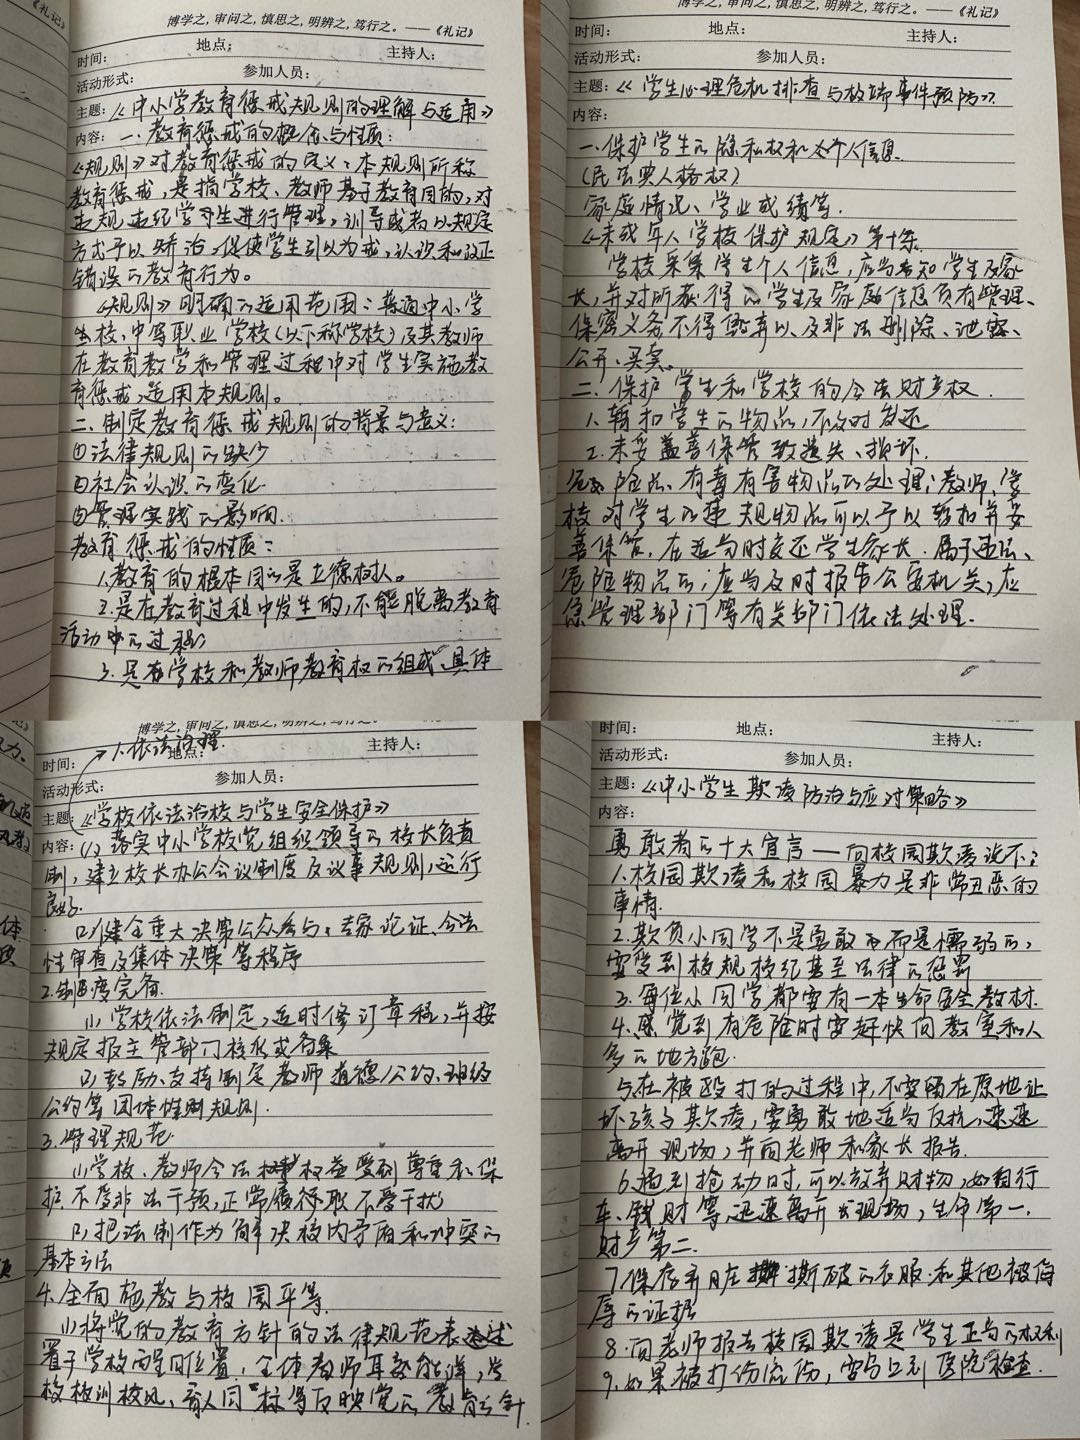 博学之,审问之,慎思之,明辨之,笃行之。——《礼记》
时间: 地点: 主持人:
活动形式: 参加人员:
主题:《中小学教育惩戒规则的理解与适用》
内容: 一.教育惩戒的概念与性质:
《规则》对教育惩戒的定义:本规则所称
教育惩戒,是指学校、教师基于教育目的,对
违规违纪学生进行管理,训导或者以规定
方式予以矫治,促使学生引以为戒,认识和改正
错误的教育行为。
《规则》明确的适用范围:普通中小学
校,中等职业学校(以下称学校)及其教师
在教育教学和管理过程中对学生实施教
育惩戒,适用本规则。
二.制定教育惩戒规则的背景与意义:
①法律规则的缺少
②社会认识的变化
③管理实践的影响.
教育惩戒的性质:
1.教育的根本目的是立德树人。
2.是在教育过程中发生的,不能脱离教育
活动中的过程;
3.是在学校和教师教育权的组成、具体
博学之,审问之,慎思之,明辨之,笃行之。——《礼记》
时间: 地点: 主持人:
活动形式: 参加人员:
主题:《学生心理危机排查与极端事件预防》.
内容:
一.保护学生的隐私权和个人信息.
(民法典人格权)
家庭情况、学业成绩等.
《未成年人学校保护规定》第十条.
学校采集学生个人信息,应当告知学生及家
长,并对所获得的学生及家庭信息负有管理、
保密义务不得毁弃以及非法删除、泄露、
公开、买卖.
二.保护学生和学校的合法财产权.
1.暂扣学生的物品,不及时发还
2.未妥善保管致遗失、损坏.
危险品、有毒有害物品的处理:教师、学
校对学生的违规物品可以予以暂扣并妥
善保管,在适当时交还学生家长.属于违法、
危险物品的;应当及时报告公安机关,应
急管理部门等有关部门依法处理.
博学之,审问之,慎思之,明辨之,笃行之。
1.依法治理.
时间: 地点: 主持人:
活动形式: 参加人员:
主题:《学校依法治校与学生安全保护》
内容:(1)落实中小学校党组织领导的校长负责
制,建立校长办公会议制度及议事规则,运行
良好.
(2)健全重大决策公众参与、专家论证、合法
性审查及集体决策等程序
2.制度完备.
(1)学校依法制定,适时修订章程,并按
规定报主管部门核准或备案
(2)鼓励、支持制定教师道德公约、班级
公约等团体性规则.
3.管理规范.
(1)学校、教师合法权益受到尊重和保
护.不受非法干预,正常履行职不受干扰
(2)把法制作为解决校内矛盾和冲突的
基本方法
4.全面施教与校园平等.
(1)将党的教育方针的法律规范表述
置于学校明显的位置.全体教师耳熟能详,学
校校训校风、育人目标等反映党的教育方针.
时间: 地点: 主持人:
活动形式: 参加人员:
主题:《中小学生欺凌防治与应对策略》
内容:
勇敢者的十大宣言——向校园欺凌说不:
1.校园欺凌和校园暴力是非常丑恶的
事情.
2.欺负小同学不是勇敢的而是懦弱的,
要受到校规校纪甚至法律的惩罚
3.每位小同学都要有一本生命安全教材.
4.感觉到有危险时要赶快向教室和人
多的地方跑.
5.在被殴打的过程中,不要留在原地让
坏孩子欺凌,要勇敢地适当反抗,速速
离开现场,并向老师和家长报告.
6.遇到抢劫时,可以放弃财物,如自行
车、钱财等,迅速离开现场,生命第一.
财产第二.
7.保存弃用在撕破的衣服和其他被侮
辱的证据
8.向老师报告校园欺凌是学生正当的权利
9.如果被打伤流伤,要马上到医院检查.